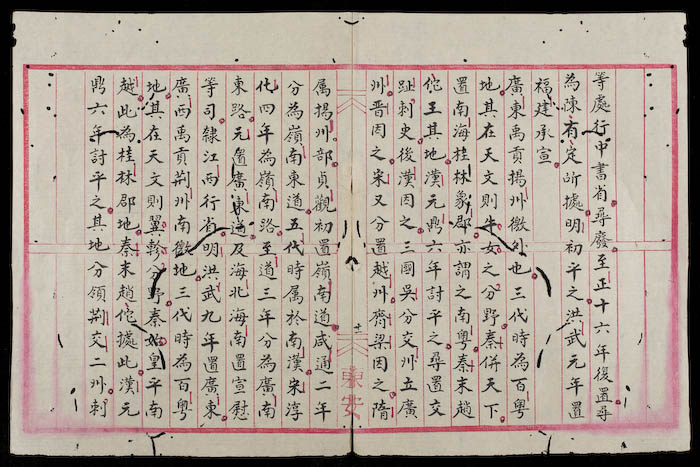 等處行中書省尋廢至正十六年復置尋
為陳有定所據明初平之洪武元年置
福建承宣
廣東禹貢揚州徼外也三代時為百粵
地其在天文則牛女之分野秦併天下
置南海桂林象郡亦謂之南粵秦末趙
佗王其地漢元鼎六年討平之尋置交
趾刺史後漢因之三國吳分交州立廣
州晋因之宋又分置越州齊梁因之隋
東安
属揚州部貞觀初置嶺南道咸通二年
分為嶺南東道五代時属於南漢宋淳
化四年為嶺南路至道三年分為廣南
東路元置廣東道及海北海南置宣慰
等司隸江西行省明洪武九年置廣東
廣西禹貢荆州南徼地三代時為百粵
地其在天文則翼軫分野秦始皇平南
越此為桂林郡地秦末趙佗據此漢元
鼎六年討平之其地分領荆交二州刺